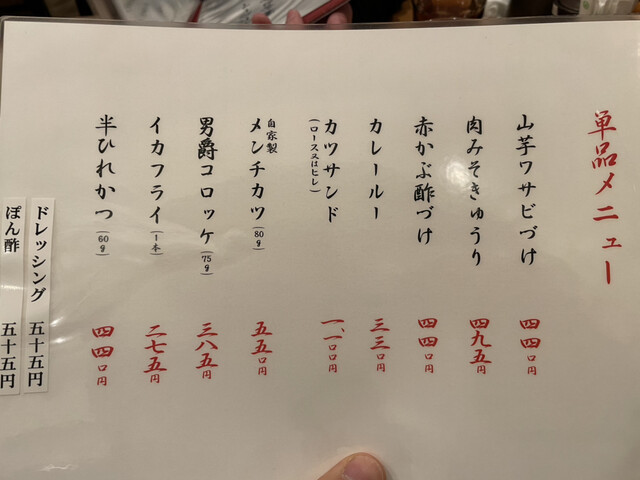 単品メニュー
山芋ワサビづけ 四四〇円
肉みそきゅうり 四九五円
赤かぶ酢づけ 四四〇円
カレールー 三三〇円
カツサンド 一、一〇〇円
(ロース又はヒレ)
自家製
メンチカツ(80g) 五五〇円
男爵コロッケ(75g) 三八五円
イカフライ(1本) 二七五円
半ひれかつ(60g) 四四〇円
ドレッシング 五十五円
ぽん酢 五十五円